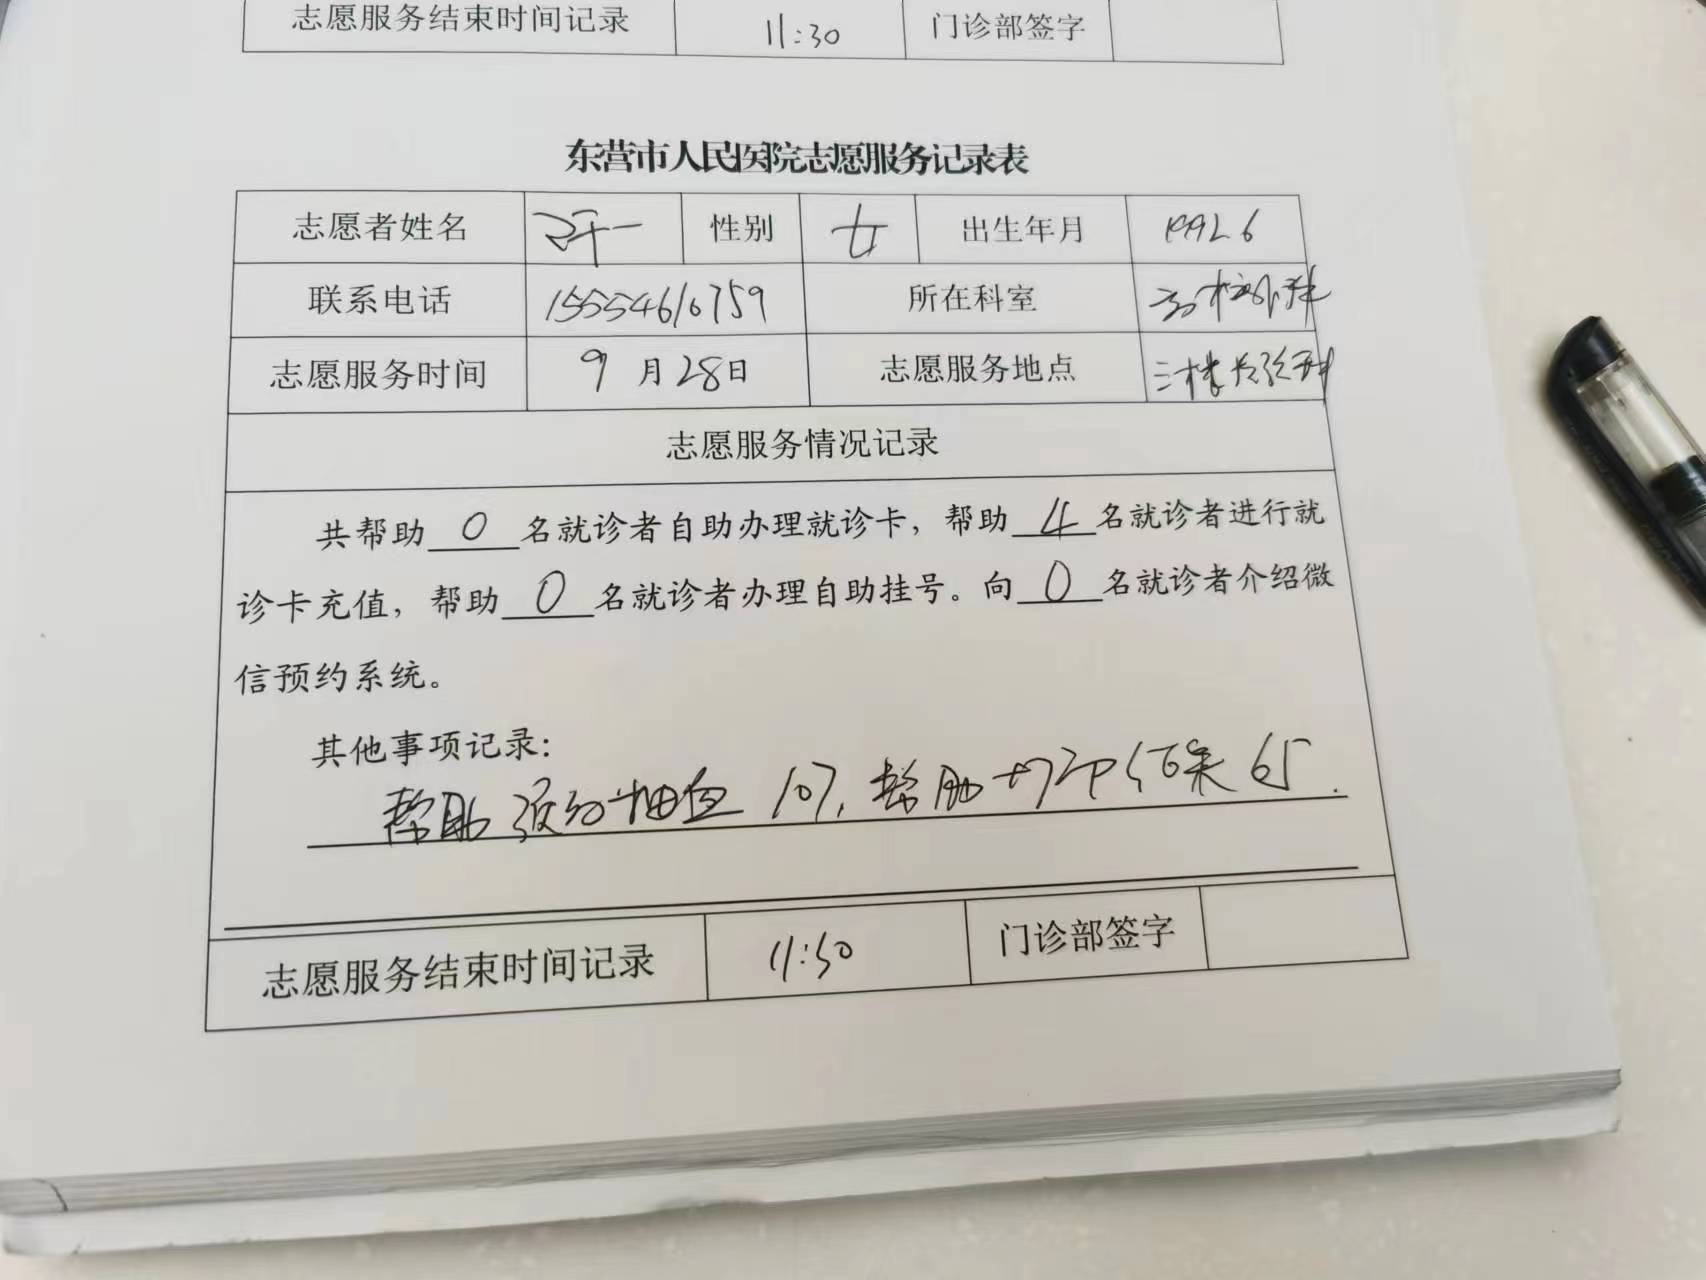 志愿服务结束时间记录 11:30 门诊部签字
东营市人民医院志愿服务记录表
志愿者姓名 性别 女 出生年月 1992.6
联系电话 15554610759 所在科室
志愿服务时间 9月28日 志愿服务地点
志愿服务情况记录
共帮助 0 名就诊者自助办理就诊卡，帮助 4 名就诊者进行就
诊卡充值，帮助 0 名就诊者办理自助挂号。向 0 名就诊者介绍微
信预约系统。
其他事项记录：
帮助预约抽血 10人，帮助打印结果 6人.
志愿服务结束时间记录 11:30 门诊部签字